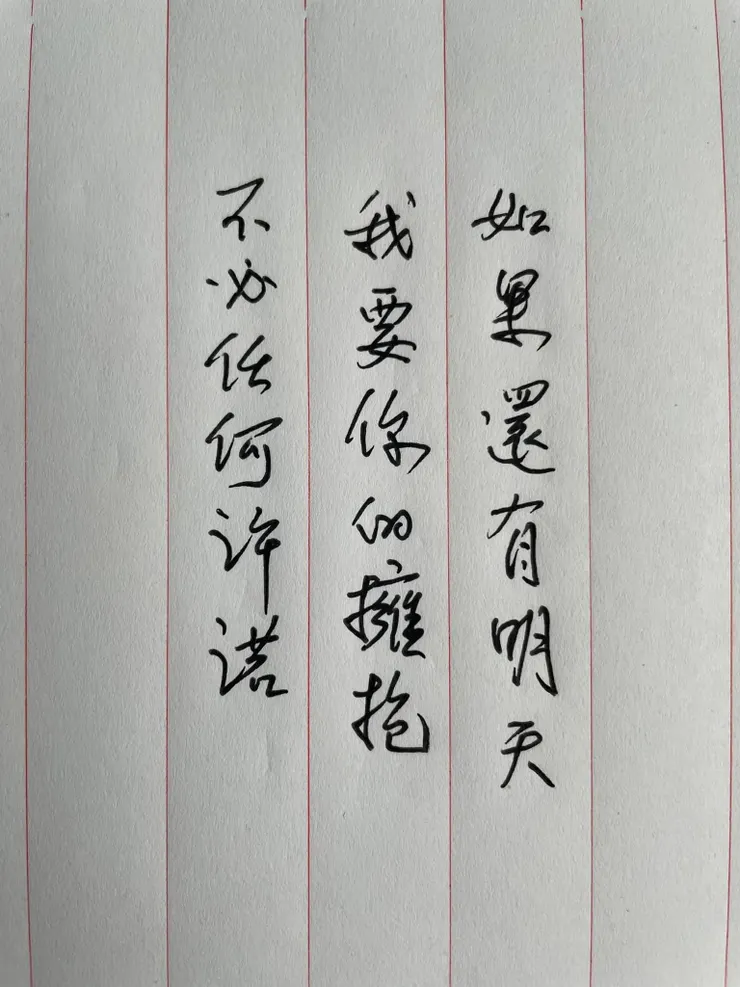 如果還有明天
我要你的擁抱
不必任何许诺